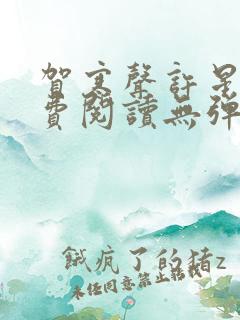 賀寒聲許星
費閱讀無彈
餓瘋了的豬z
未經同意禁止轉載